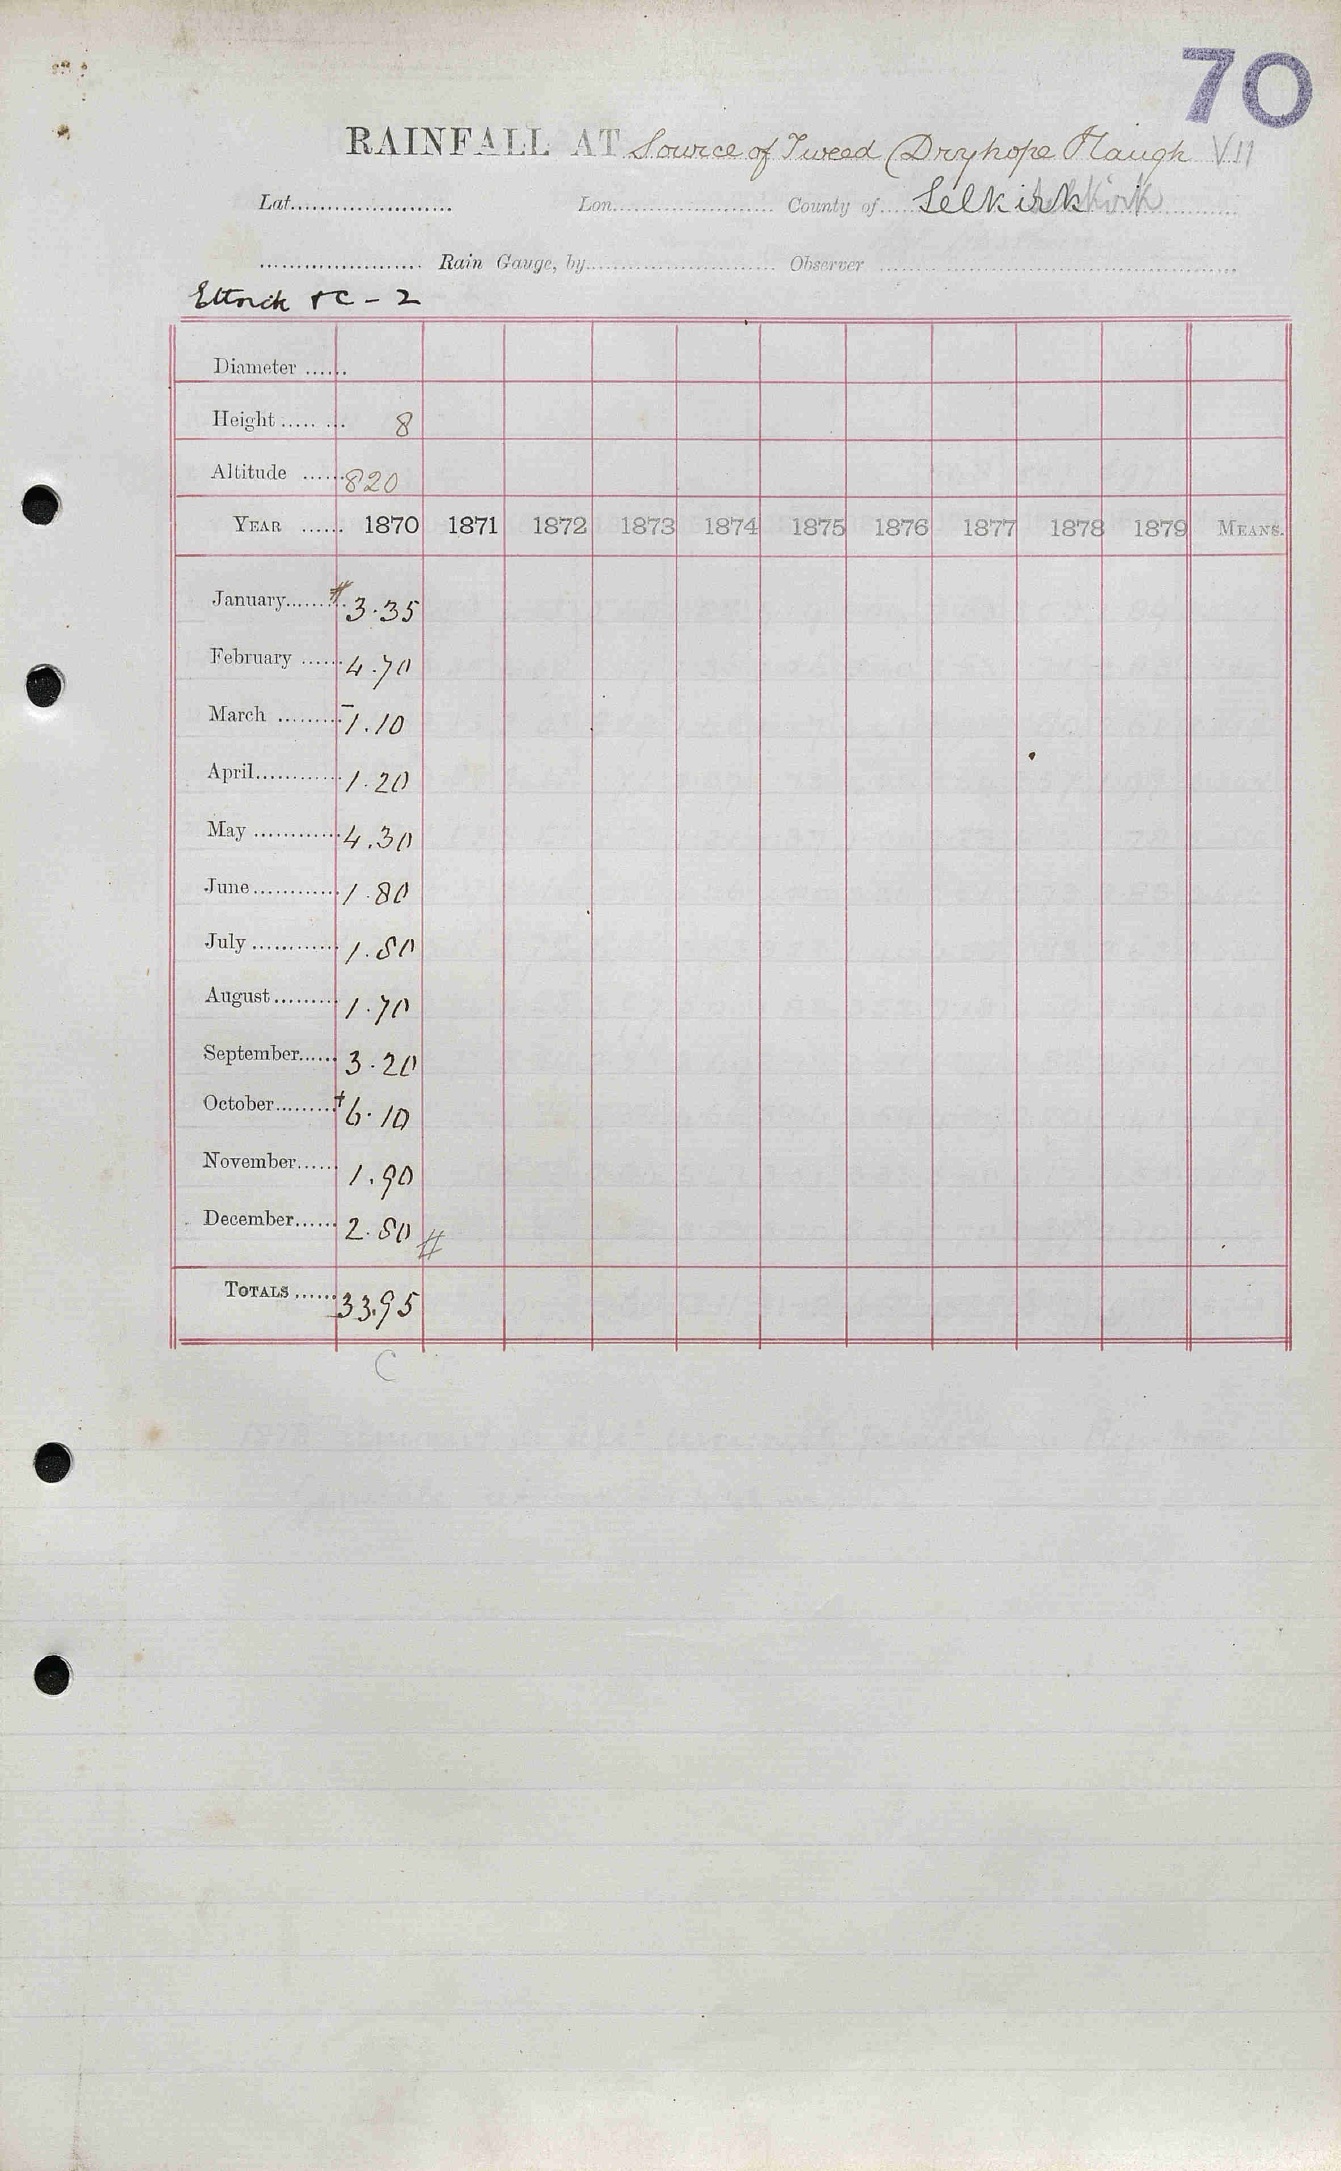 70
RAINFALL AT Source of Tweed (Dryhope Haugh VII
Lat...................... Lon...................... County of..... Selkirk Selkirk
...................... Rain Gauge, by...................... Observer ......................
Ettrick &C - 2
Diameter ......
Height ........ 8
Altitude ...... 820
YEAR ...... 1870 1871 1872 1873 1874 1875 1876 1877 1878 1879 MEANS.
January......... # 3.35
February ...... 4.70
March ......... 1.10
April............ 1.20
May ............ 4.30
June............ 1.80
July ............ 1.80
August......... 1.70
September...... 3.20
October......... + 6.10
November...... 1.90
December...... 2.80 #
TOTALS ...... 33.95
C